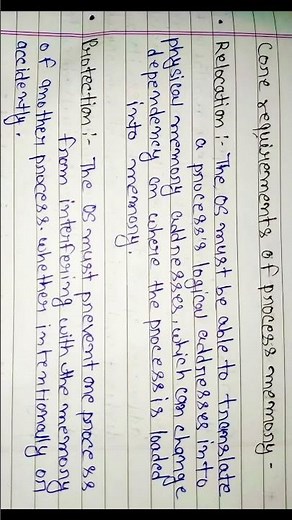 Core requirements of process memory -
• Relocation :- The OS must be able to translate
a process's logical addresses into
physical memory addresses, which can change
dependency on where the process is loaded
into memory.
• Protection :- The OS must prevent one process
from interfering with the memory
of another process. whether intentionally or
accidently.